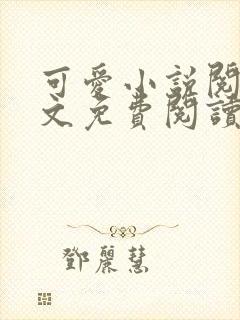 可愛小說閱
文免費閱讀
鄧麗慧